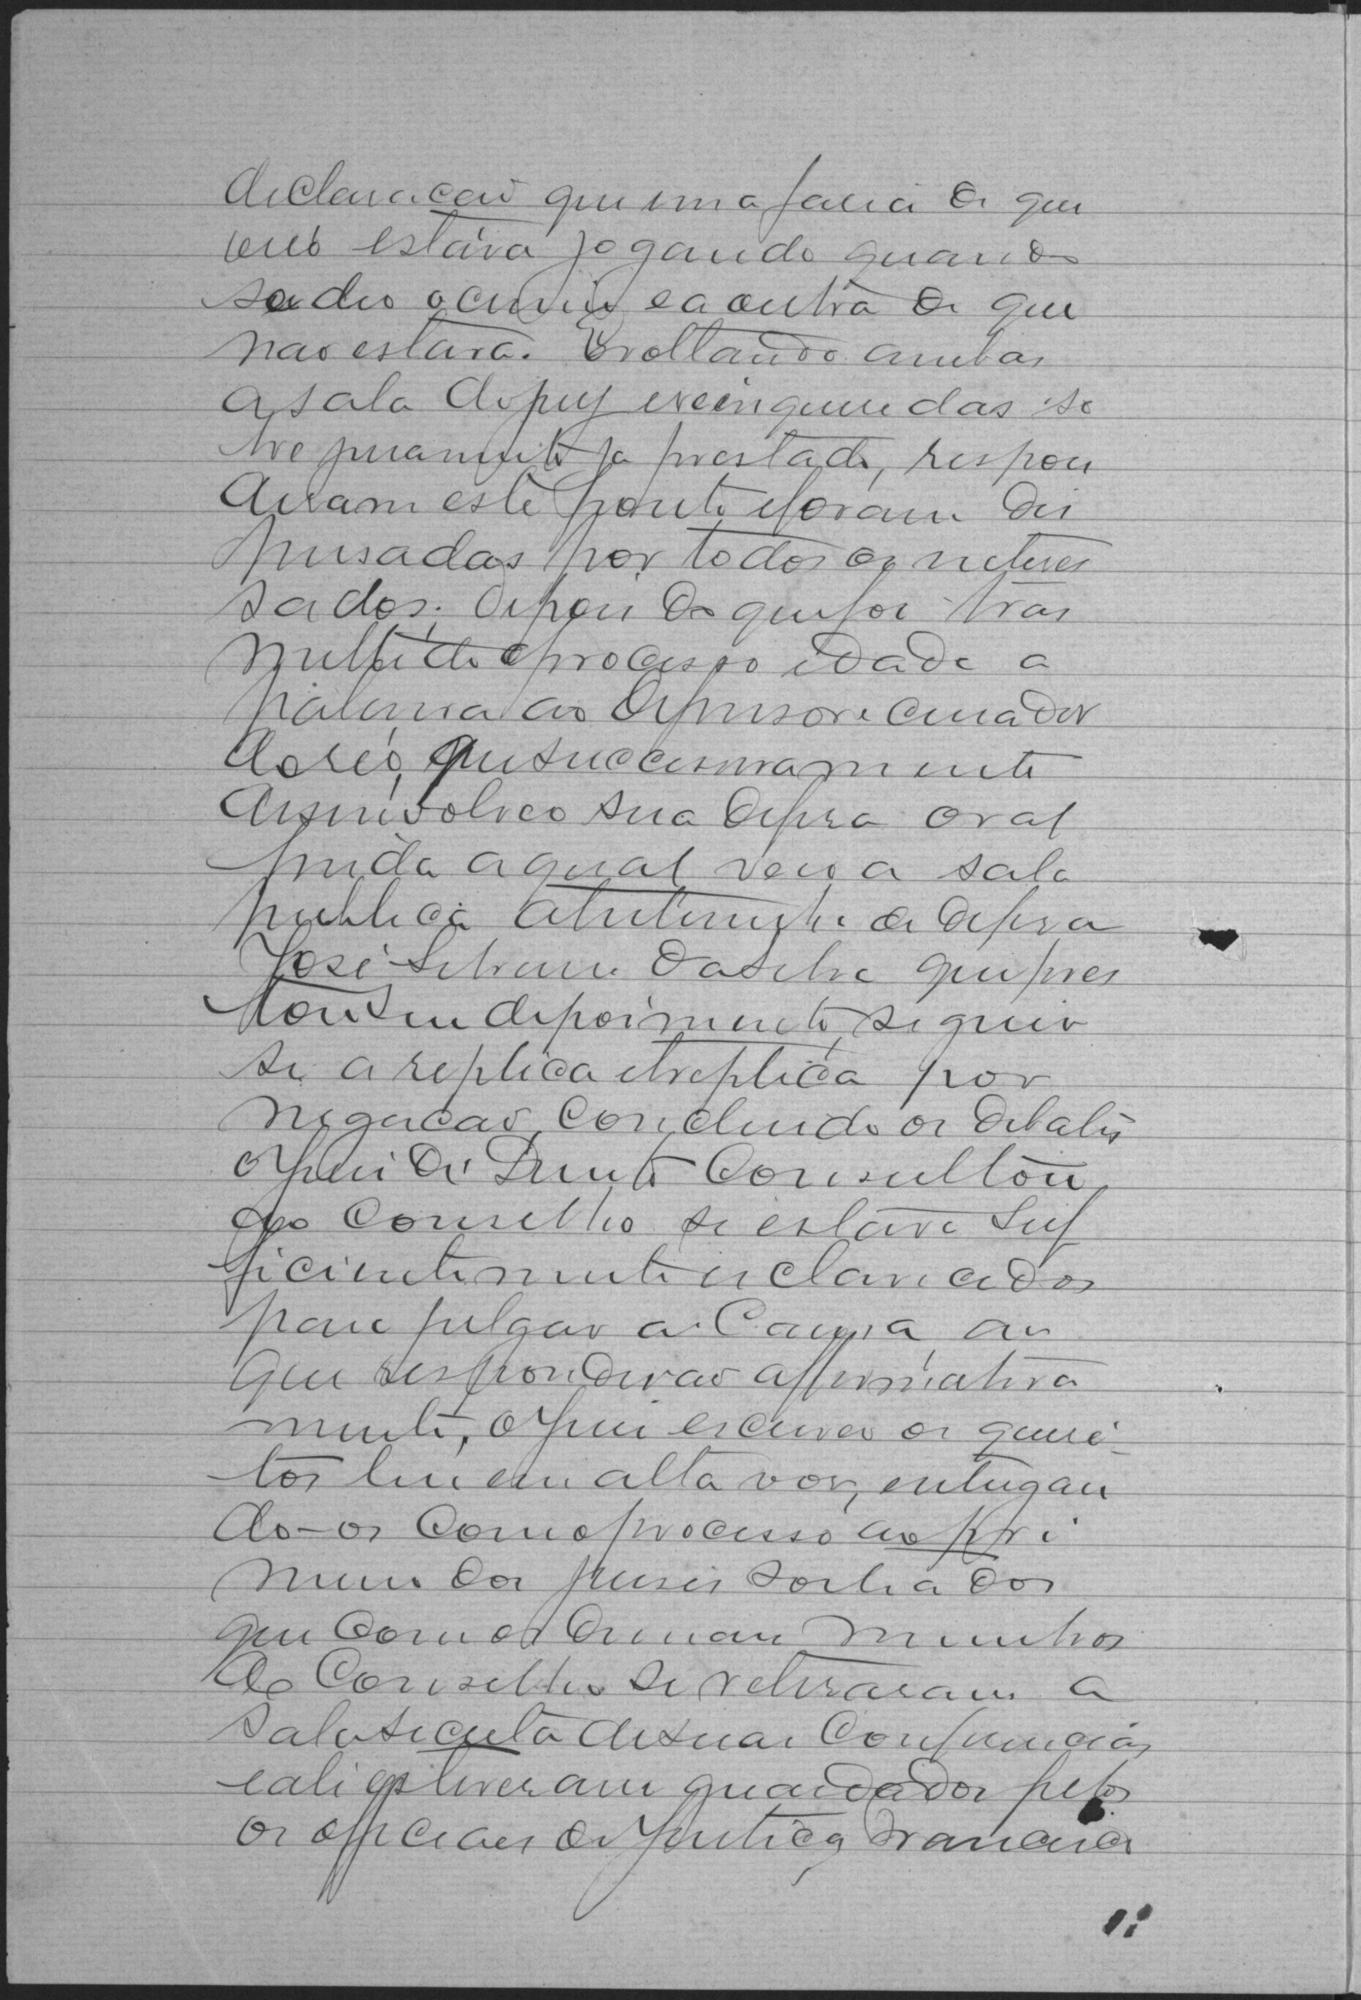 declaração que uma fasia de que
o reo estava jogando quando
se deo o crime e a outra de que
não estava. E voltando ambas
a sala do jury e reinqueridas so
bre juramento ja prestado, respon
deram este ponto e foram dis
pensadas por todos os interes
sados; depois do que foi trans
mittido o processo e dada a
palavra ao Defensor e curador
do reo, que successivamente
desinvolveo sua defesa oral
finda a qual veio a sala
publica a testemunha de defesa
José Silverio da Silva que pres
tou seu depoimento, seguio
se a replica e treplica por
negacão, concluido os debates
o Juiz de Direito Consultou
ao Conselho se estava suf
ficientemente esclarecidos
para julgar a Causa, ao
que responderão affirmativa
mente, o Juiz escreveo os quesi-
tos leu em alta voz, entregan
do-os com o processo ao pri
meiro dos Juises sorteados
que com os demais membros
do Conselho se retiraram a
sala secreta de suas Conferencias
e ali estiveram guardados pelos
os officiaes de Justiça Francisco